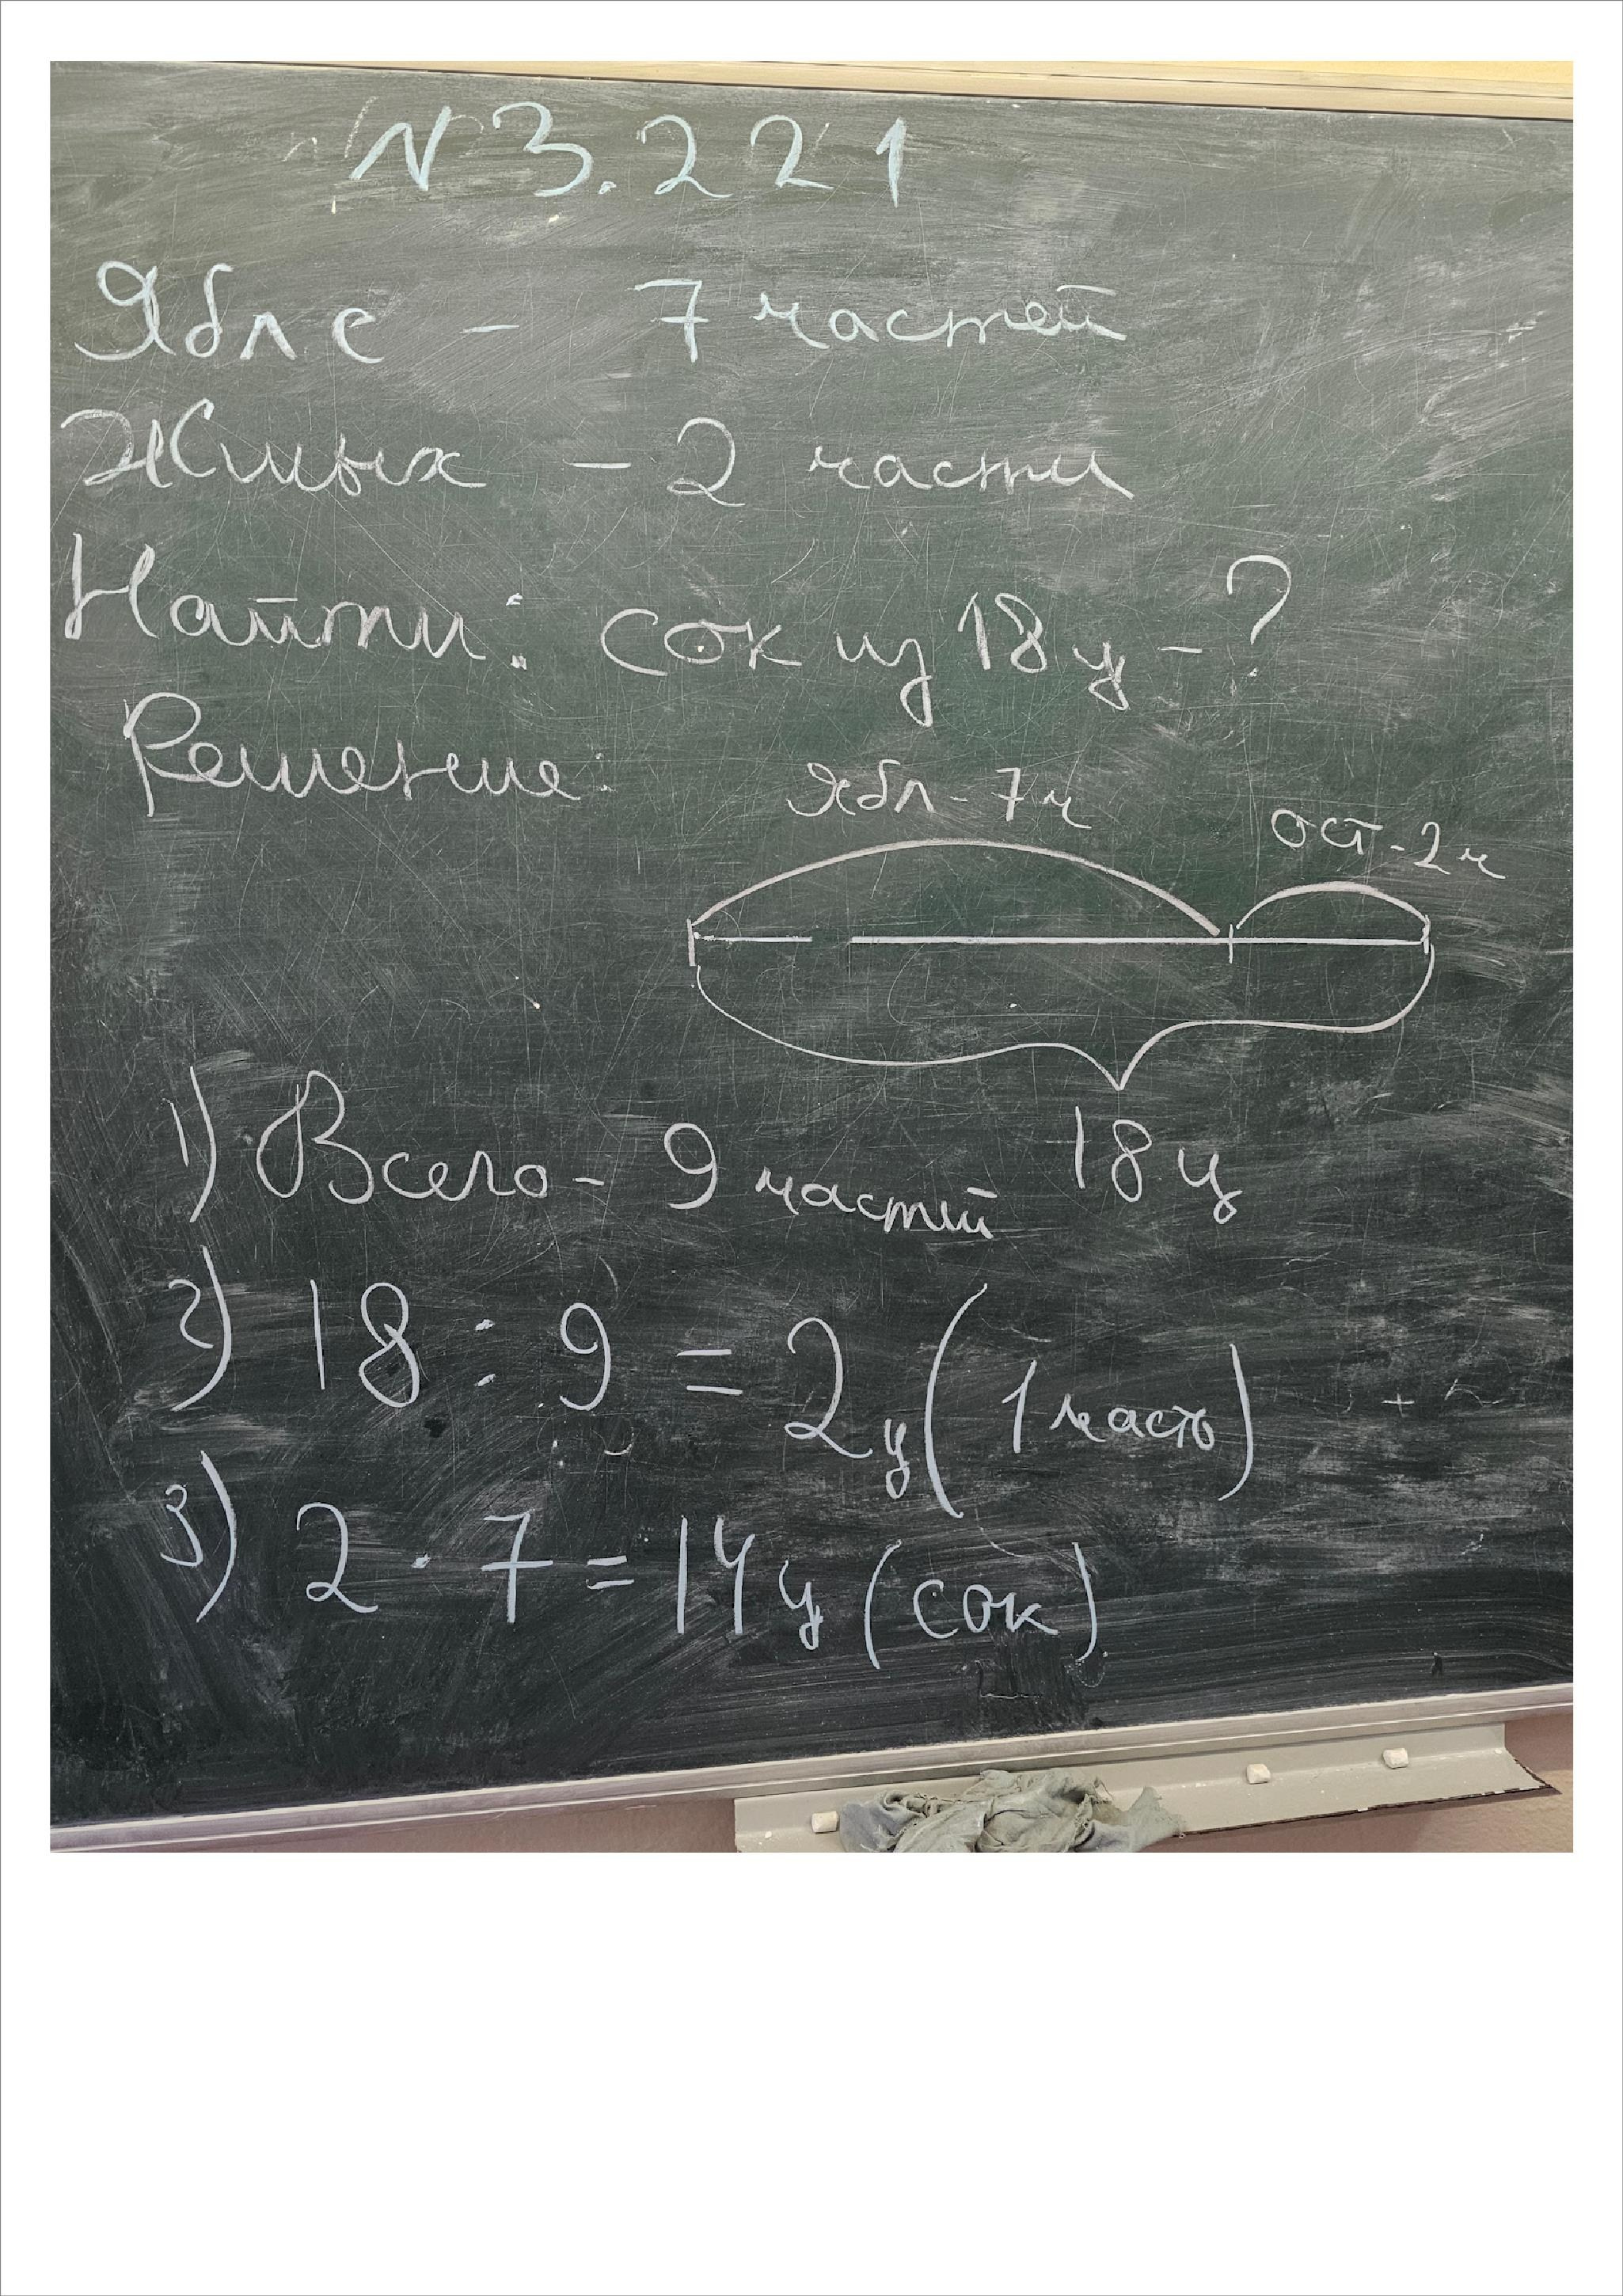 N 3.221
Ябл с - 7 частей
Жмых - 2 части
Найти: сок из 18 ц - ?
Решение.
ябл - 7 ч
ост - 2 ч
18 ц
1) Всего - 9 частей
2) 18 : 9 = 2 ц (1 часть)
3) 2 · 7 = 14 ц (сок)